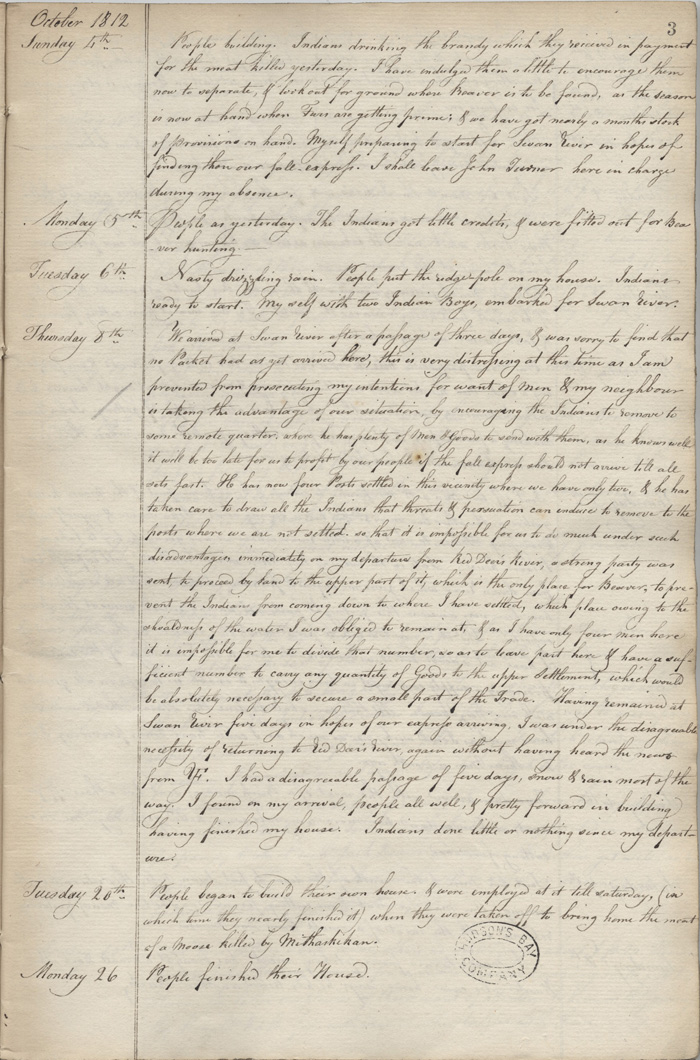 3
October 1812
Sunday 4th People building. Indians drinking the brandy which they received in payment
for the meat killed yesterday. I have indulged them a little to encourage them
now to separate, & look out for ground where Beaver is to be found, as the season
is now at hand when Furs are getting prime; & we have got nearly a months stock
of provisions on hand. Myself preparing to start for Swan River in hopes of
finding thon our fall express. I shall leave John Turner here in charge
during my absence.
Monday 5th People as yesterday. The Indians got little credits, & were fitted out for Bea
-ver hunting.
Tuesday 6th Nasty drizzling rain. People put the ridge pole on my house. Indians
ready to start. My self with two Indian Boys, embarked for Swan River.
Thursday 8th We arrived at Swan River after a passage of three days, & was sorry to find that
no Packet had as yet arrived here, this is very distressing at this time as I am
prevented from prosecuting my intentions for want of Men & my neighbour
is taking the advantage of our situation, by encouraging the Indians to remove to
some remote quarter, where he has plenty of Men & Goods to send with them, as he knows well
it will be too late for us to profit by our people if the fall express should not arrive till all
sets fast. He has now four Posts settled in this vicinity where we have only two, & he has
taken care to draw all the Indians that threats & persuation can induce to remove to the
parts where we are not settled. so that it is impossible for us to do much under such
disadvantages immediately on my departure from Red Deers River, a strong party was
sent to proceed by land to the upper part of it, which is the only place for Beaver, to pre-
vent the Indians from coming down to where I have settled, which place owing to the
shoaldness of the water I was obliged to remain at, & as I have only four men here
it is impossible for me to divide that number, so as to leave part here & have a suf-
ficient number to carry any quantity of Goods to the upper Settlement, which would
be absolutely necessary to secure a small part of the Trade. Having remained at
Swan River five days in hopes of our express arriving, I was under the disagreeable
necessity of returning to Red Deers River, again without having heard the news
from YF. I had a disagreeable passage of five days, snow & rain most of the
way. I found on my arrival, people all well, & pretty forward in building
having finished my house. Indians done little or nothing since my depart-
ure.
Tuesday 20th People began to build their own house. & were employed at it till saturday, (in
which time they nearly finished it) when they were taken off to bring home the meat
of a Moose killed by Mithaskekan.
Monday 26 People finished their House.
HUDSON'S BAY
COMPANY